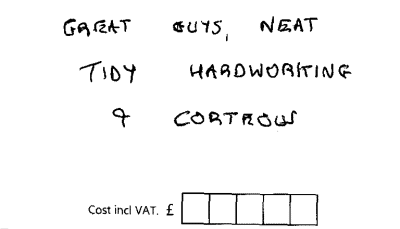 GREAT GUYS, NEAT
TIDY HARDWORKING
& CORTROUS
Cost incl VAT. £